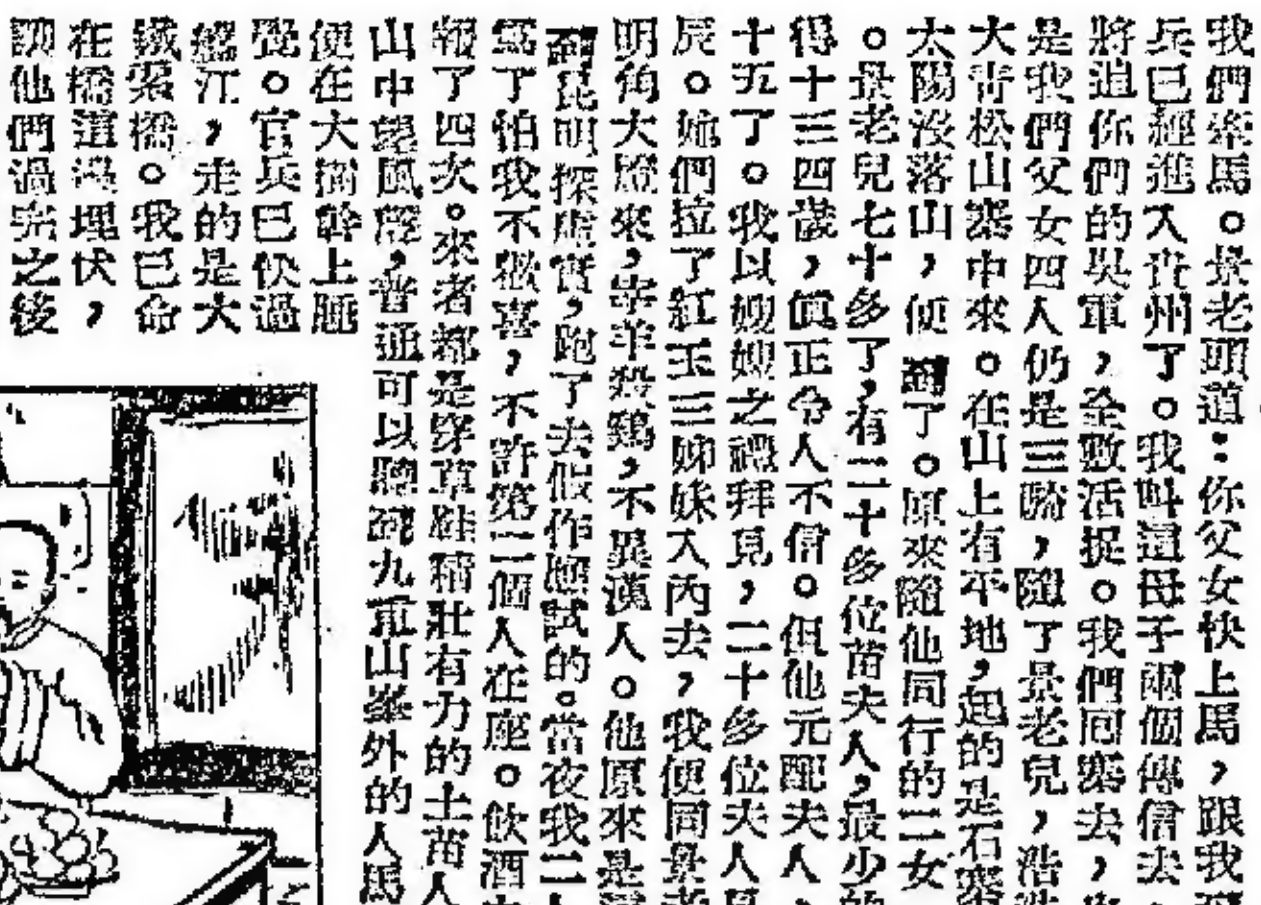 我們來馬。景老頭道：你父女快上馬，跟我
兵已經進入貴州了。我叫這母子兩個傳信去
將道你們的吳軍，全數活捉。我們回寨去，
是我們父女四人仍是三騎，隨了景老兒，浩
大青松山寨中來。在山上有平地，起的是石寨
太陽沒落山，便到了。原來隨他同行的二女
。景老兒七十多了，有二十多位苗夫人，最少的
得十三四歲，眞正令人不信。但他元配夫人，
十五了。我以嫂嫂之禮拜見，二十多位夫人
辰。她們拉了紅玉三姊妹入內去，我便同景老
明角大燈來，宰羊殺鷄，不異漢人。他原來是
到昆明探虛實，跑了去假作應試的。當夜我二人
了怕我不歡喜，不許第二個人在座。飲酒
報了四次。來者都是穿草鞋精壯有力的土苗人
山中聽風聲，普通可以聽到九重山巒外的人馬
便在大樹幹上睡
覺。官兵已快過
江，走的是大
鐵索橋。我已命
在橋這邊埋伏，
他們過完之後